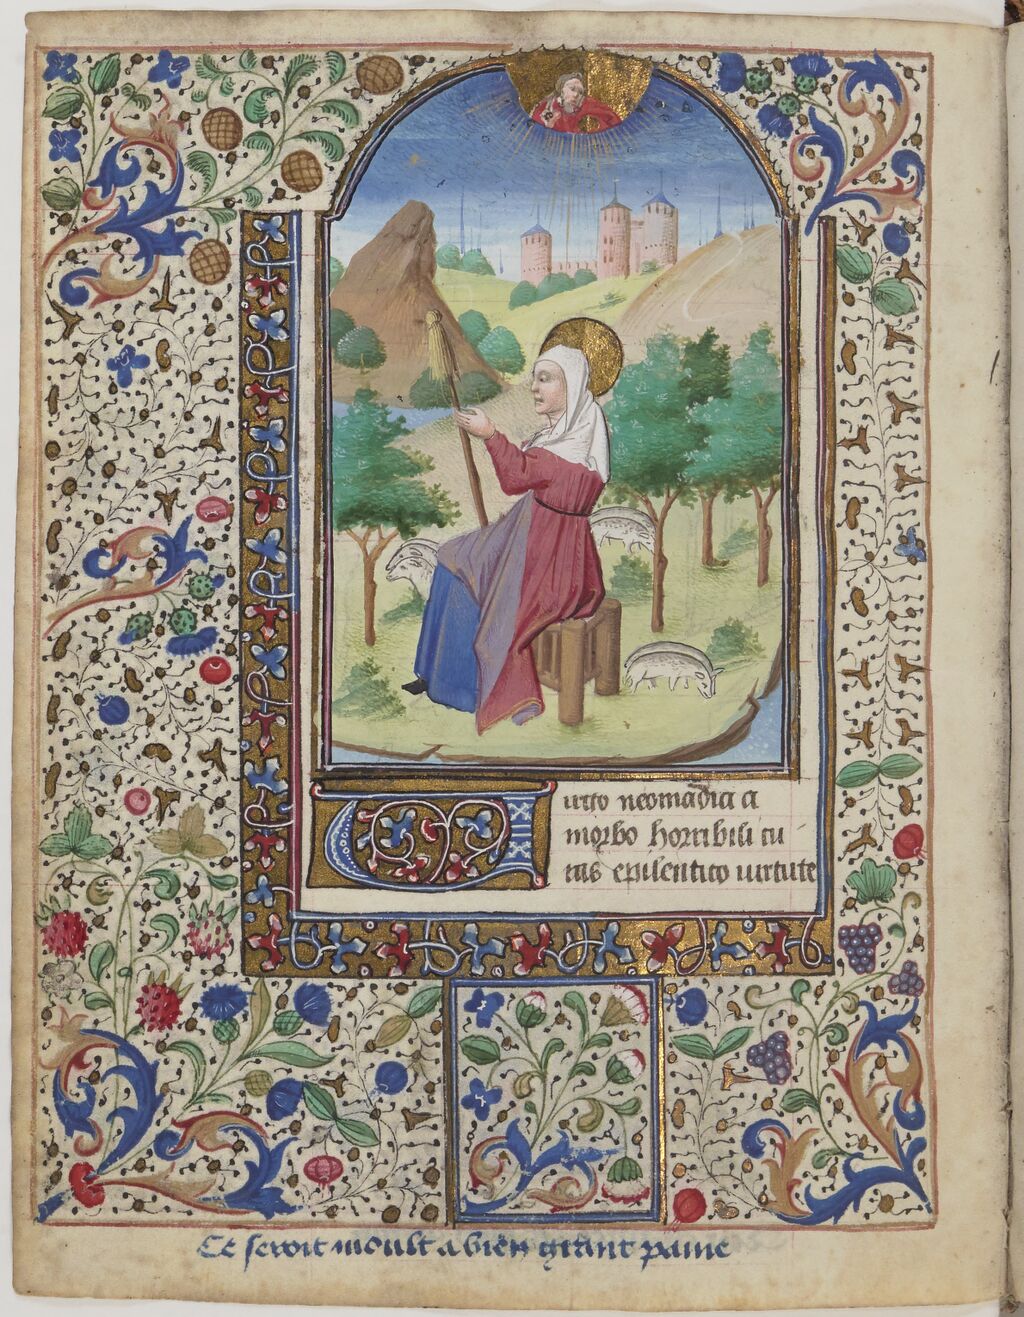 Uirgo neomadia a
morbo horribili cu
ras epilentico uirtute
Et seroit moult a bien grant paine